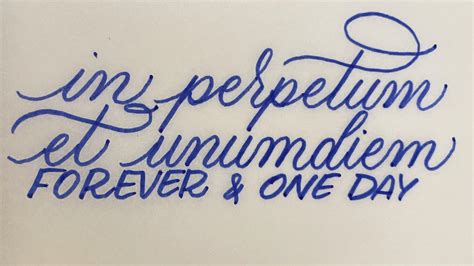 in perpetum
et unumdiem
FOREVER & ONE DAY